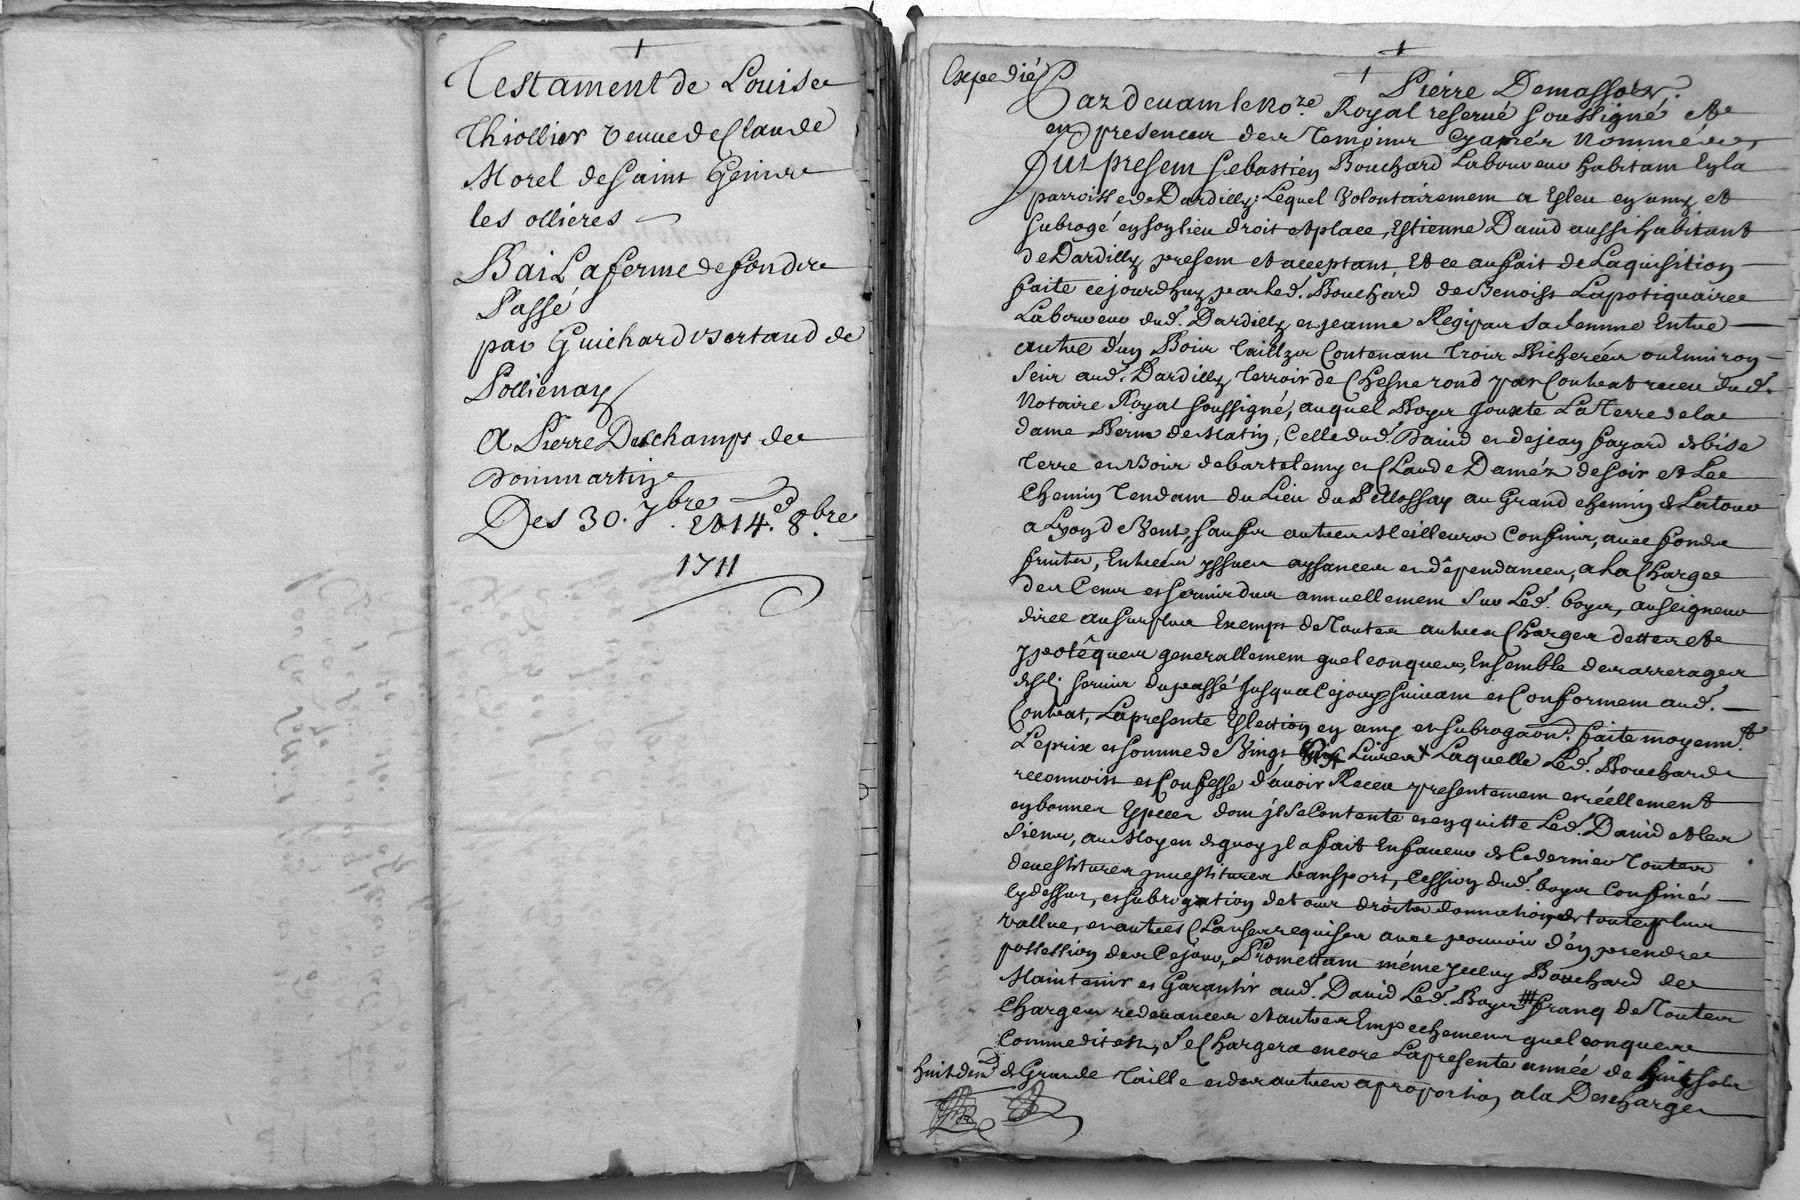 Testament de Louise
Thiollier veuue de Claude
Morel de Saint Genis
les ollieres
Bail a ferme de fonds
Passé
par Guichard Bertaud de
Pollienay
A Pierre Deschamps de
Dommartin
Des 30. 7bre et 14e. 8bre
1711
Expedié
Pierre Demassoz.
Pardeuant le Nore. Royal reserué soussigné et
en presence des temoins cy apres nommés,
fut present Sebastien Bouchard Laboureur habitant en la
parroisse de Dardilly; Lequel volontairement a Esleu en amy et
subrogé en son lieu droit et place, Estienne Dauid aussi habitant
de Dardilly present et acceptant, Et ce au fait de Laquisition
faite cejourdhuy par led. Bouchard de Benoist Lapotiquaire
Laboureur dud. Dardilly et jeanne Regipas sa femme Entre
autre d'un Bois taillzer Contenant trois Bicherées ou Enuiron
Scis aud. Dardilly terroir de Chesne rond par Contrat receu dud.
Notaire Royal soussigné, auquel Boyer jouxte La Terre de la
dame de Matin, Celle dud. Dauid et de jean fayard de bise
Terre et Bois de bartelemy et Claude Daméz de soir et Le
Chemin Tendant du Lieu du Pellossay au Grand chemin de Latour
a Lyon de Vent, sauf ses autres Meilleurs Confins, auec fonds
fruits, Entrées yssues aysances et dépendances, a la Charge
des Cens et seruis dus annuellement sur Led. boyer, au seigneur
direc au surplus Exempt de toutes autres Charges dettes et
ypotêques generallement quelconques, Ensemble des arrerages
desd. seruis du passé jusqua Cejourdhuy suiuant et Conforment aud.
Contrat, La presente Eslection en amy et subrogaon. faite moyennt.
Le prix et somme de Vingt Liures Laquelle Led. Bouchard
reconnoist et Confesse d'auoir Receu presentement et réellement
en bonnes Especes dont jl se Contente et en quitte Led. Dauid et les
siens, au Moyen de quoy jl a fait En faueur de Ce dernier Toutes
deuestitures jnuestitures transport, Cession dud. boyer Confinés
Cy dessus, et subrogation de tous droits donnation de toute plus
vallue, et autres Clauses requises auec pouuoir d'en prendre
possession des Cejour, Promettant même jceluy Bouchard de
Maintenir et Garantir aud. Dauid Led. Boyer # franq de Toutes
Charges redeuances et autres Empechements quelconques
Comme dit est, Se Chargera encore La presente année de sols
huit den. de Grande Taille et des autres a proportion a la Descharge